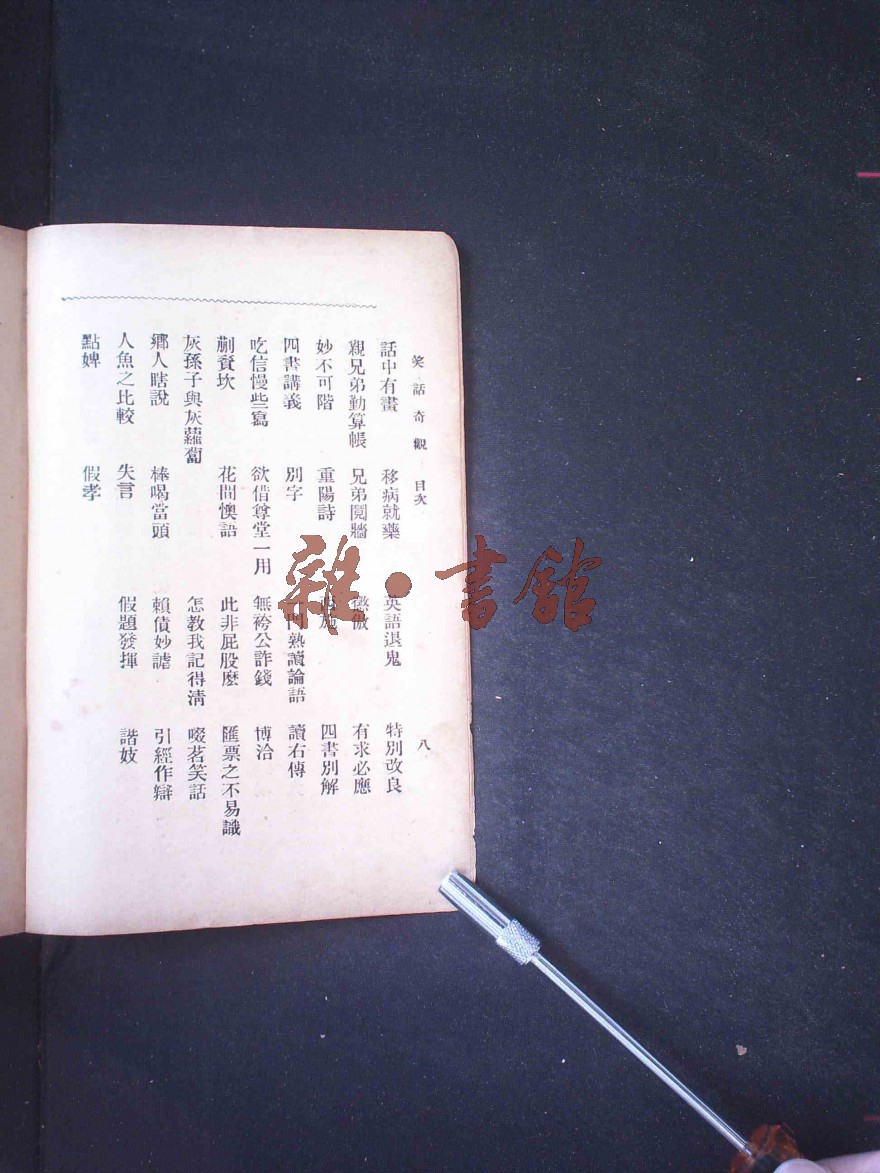 笑話奇觀 目次 八
話中有畫 移病就藥 英語退鬼 特別改良
親兄弟勤算帳 兄弟鬩牆 有求必應
妙不可階 重陽詩 四書別解
四書講義 別字 熟讀論語 讀右傳
吃信慢些寫 欲借尊堂一用 無袴公詐錢 博洽
蒯賚坎 花間懊語 此非屁股麽 匯票之不易識
灰孫子與灰蘿蔔 怎教我記得淸 啜茗笑話
鄉人瞎說 棒喝當頭 賴債妙謔 引經作辯
人魚之比較 失言 假題發揮 諧妓
點婢 假孝
雜·書館